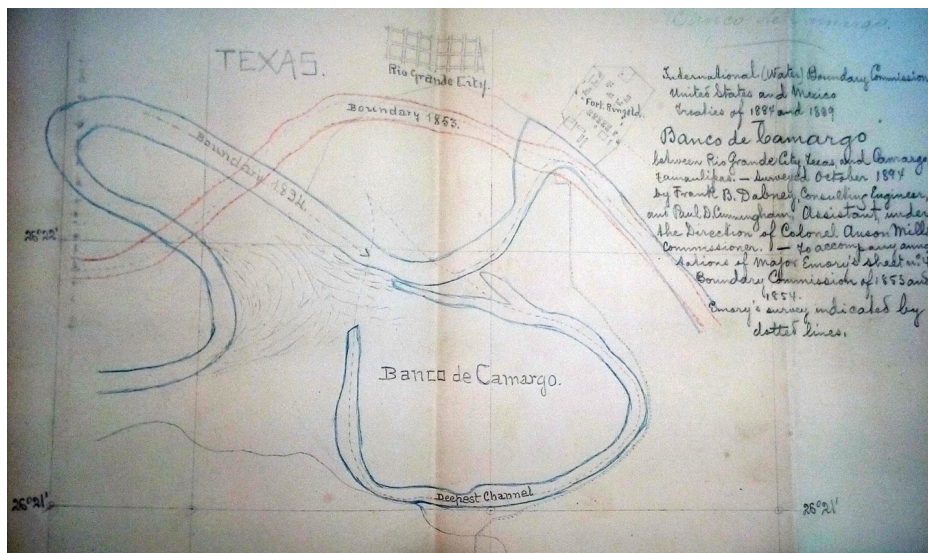 Banco de Camargo.
TEXAS.
Rio Grande City.
Fort Ringold.
Boundary 1853.
Boundary 1894.
26°22'
Banco de Camargo.
Deepest Channel
26°21'
26°21'
International (Water) Boundary Commission
United States and Mexico
Treaties of 1884 and 1889
Banco de Camargo
between Rio Grande City, Texas, and Camargo
Tamaulipas. — Surveyed October 1894
by Frank B. Dabney, Consulting Engineer,
and Paul D. Cunningham, Assistant, under
the Direction of Colonel Anson Mills
Commissioner. — To accompany
of Major Emory's sheet
Boundary Commission of 1853 and
1854.
Emory's survey indicated by
dotted lines.